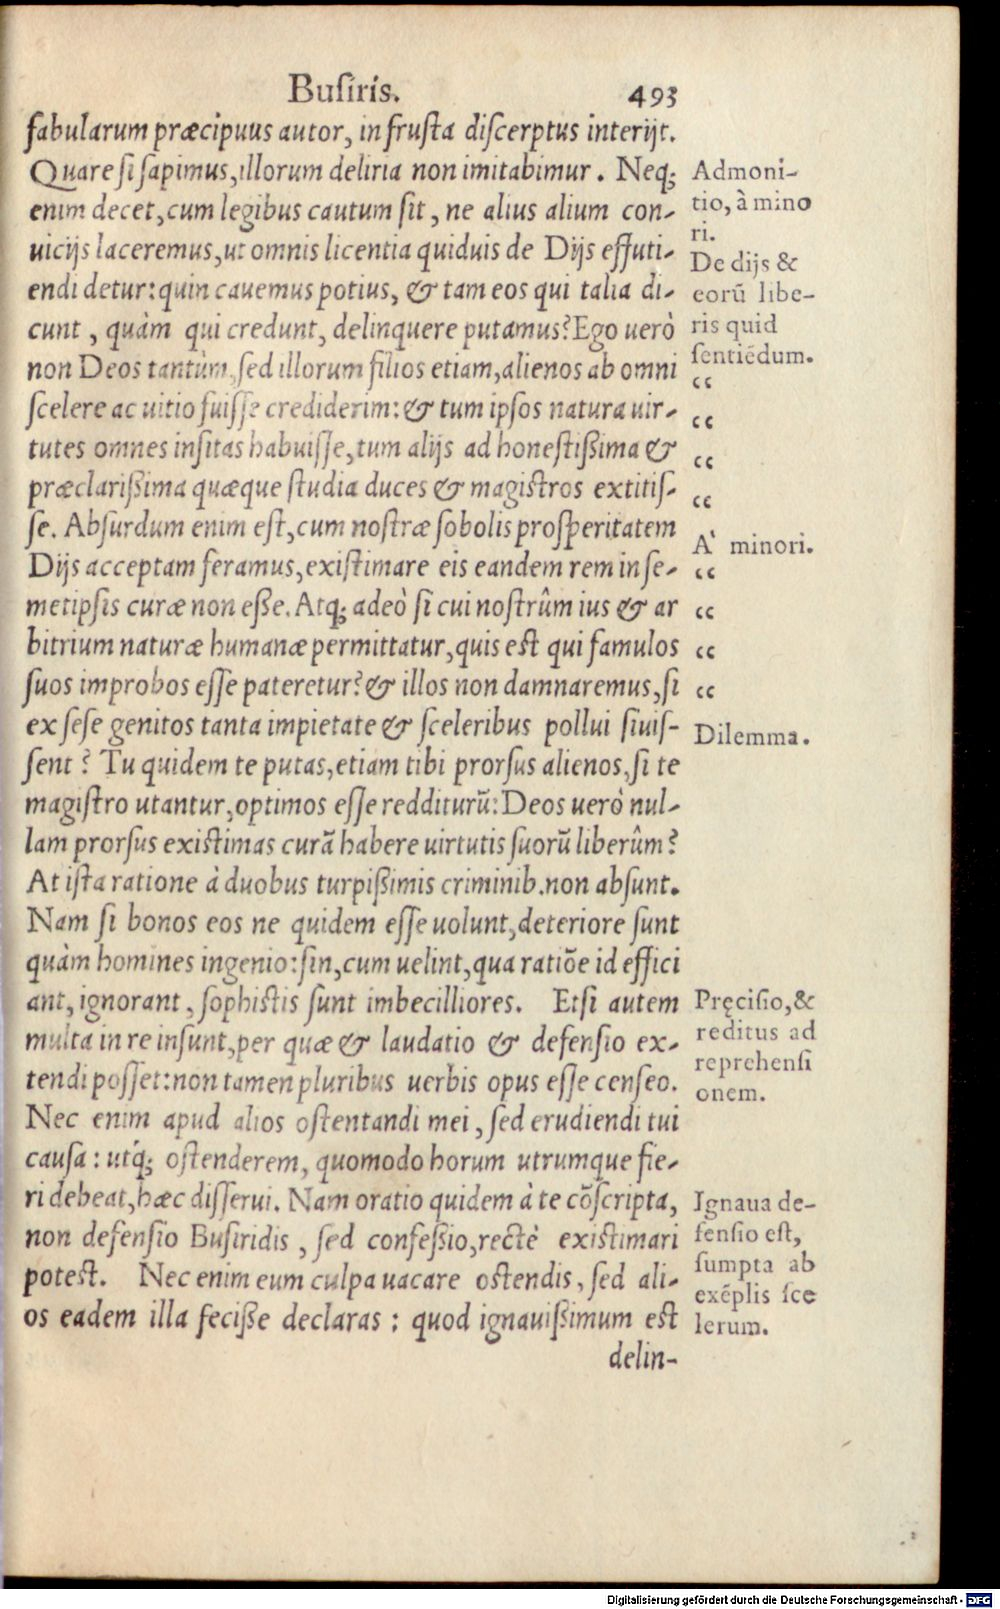 Busiris. 493
fabularum præcipuus autor, in frusta discerptus interijt.
Quare si sapimus, illorum deliria non imitabimur. Neq;
enim decet, cum legibus cautum sit, ne alius alium con-
uicijs laceremus, ut omnis licentia quiduis de Dijs effuti-
endi detur: quin cauemus potius, & tam eos qui talia di-
cunt, quàm qui credunt, delinquere putamus? Ego uerò
non Deos tantùm, sed illorum filios etiam, alienos ab omni
scelere ac uitio fuisse crediderim: & tum ipsos natura uir-
tutes omnes insitas habuisse, tum alijs ad honestißima &
præclarißima quæque studia duces & magistros extitis-
se. Absurdum enim est, cum nostræ sobolis prosperitatem
Dijs acceptam feramus, existimare eis eandem rem in se-
metipsis curæ non eße. Atq; adeò si cui nostrûm ius & ar
bitrium naturæ humanæ permittatur, quis est qui famulos
suos improbos esse pateretur? & illos non damnaremus, si
ex sese genitos tanta impietate & sceleribus pollui siuis-
sent? Tu quidem te putas, etiam tibi prorsus alienos, si te
magistro utantur, optimos esse redditurũ: Deos uerò nul-
lam prorsus existimas curã habere uirtutis suorũ liberûm?
At ista ratione à duobus turpißimis criminib. non absunt.
Nam si bonos eos ne quidem esse uolunt, deteriore sunt
quàm homines ingenio: sin, cum uelint, qua ratiõe id effici
ant, ignorant, sophistis sunt imbecilliores. Etsi autem
multa in re insunt, per quæ & laudatio & defensio ex-
tendi posset: non tamen pluribus uerbis opus esse censeo.
Nec enim apud alios ostentandi mei, sed erudiendi tui
causa: utq́; ostenderem, quomodo horum utrumque fie-
ri debeat, hæc disserui. Nam oratio quidem à te cõscripta,
non defensio Busiridis, sed confeßio, rectè existimari
potest. Nec enim eum culpa uacare ostendis, sed ali-
os eadem illa feciße declaras: quod ignauißimum est
delin-
Admoni-
tio, à mino
ri.
De dijs &
eorũ libe-
ris quid
sentiẽdum.
“
“
“
“
A` minori.
“
“
“
“
Dilemma.
Pręcisio, &
reditus ad
reprehensi
onem.
Ignaua de-
fensio est,
sumpta ab
exẽplis sce
lerum.
Digitalisierung gefördert durch die Deutsche Forschungsgemeinschaft - DFG